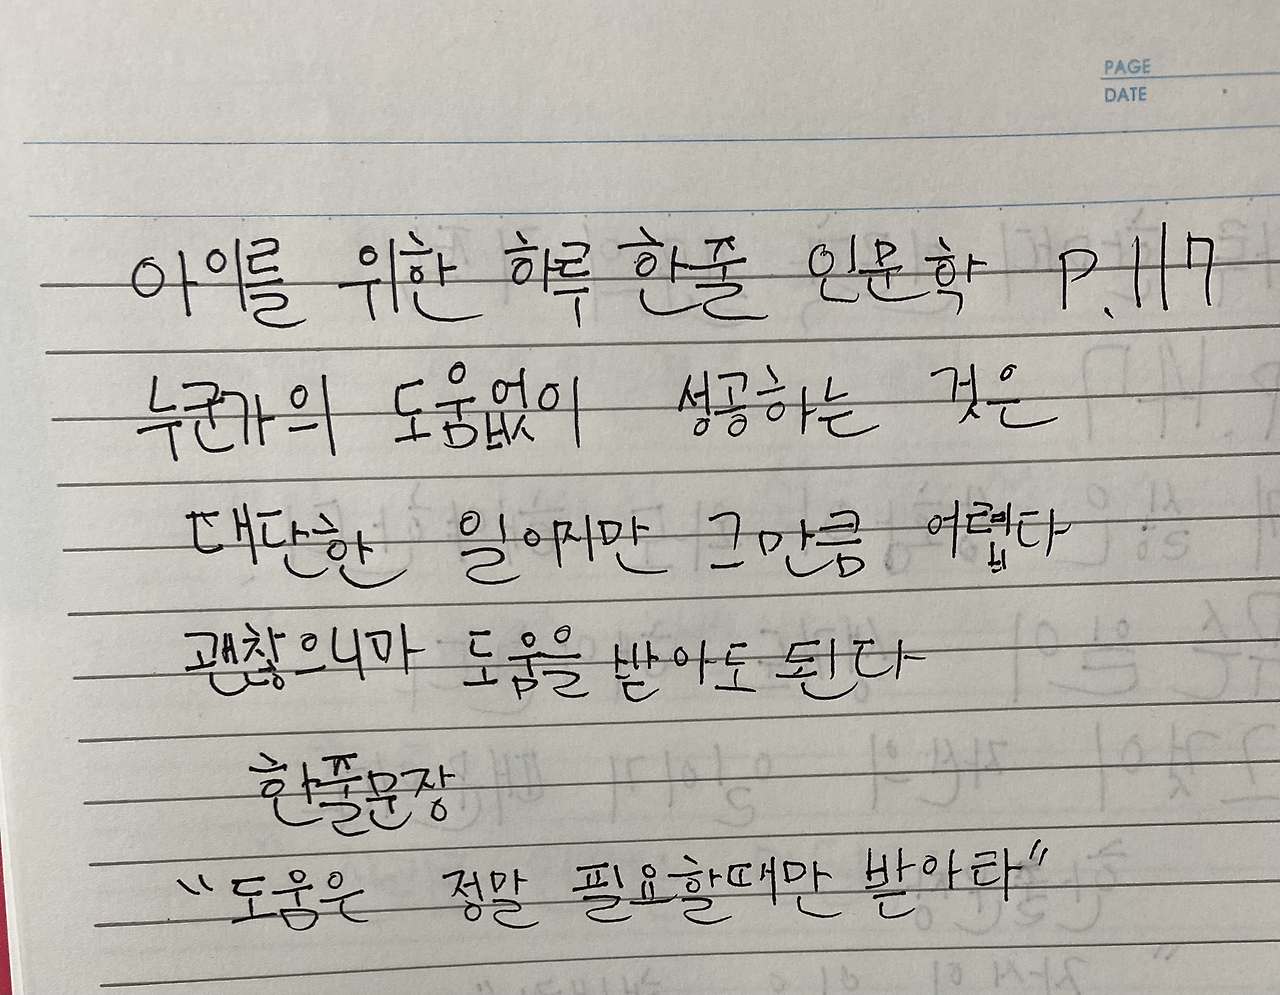 PAGE
DATE
아이를 위한 하루 한줄 인문학 P.117
누군가의 도움없이 성공하는 것은
대단한 일이지만 그만큼 어렵다
괜찮으니까 도움을 받아도 된다
한줄문장
"도움은 정말 필요할때만 받아라"